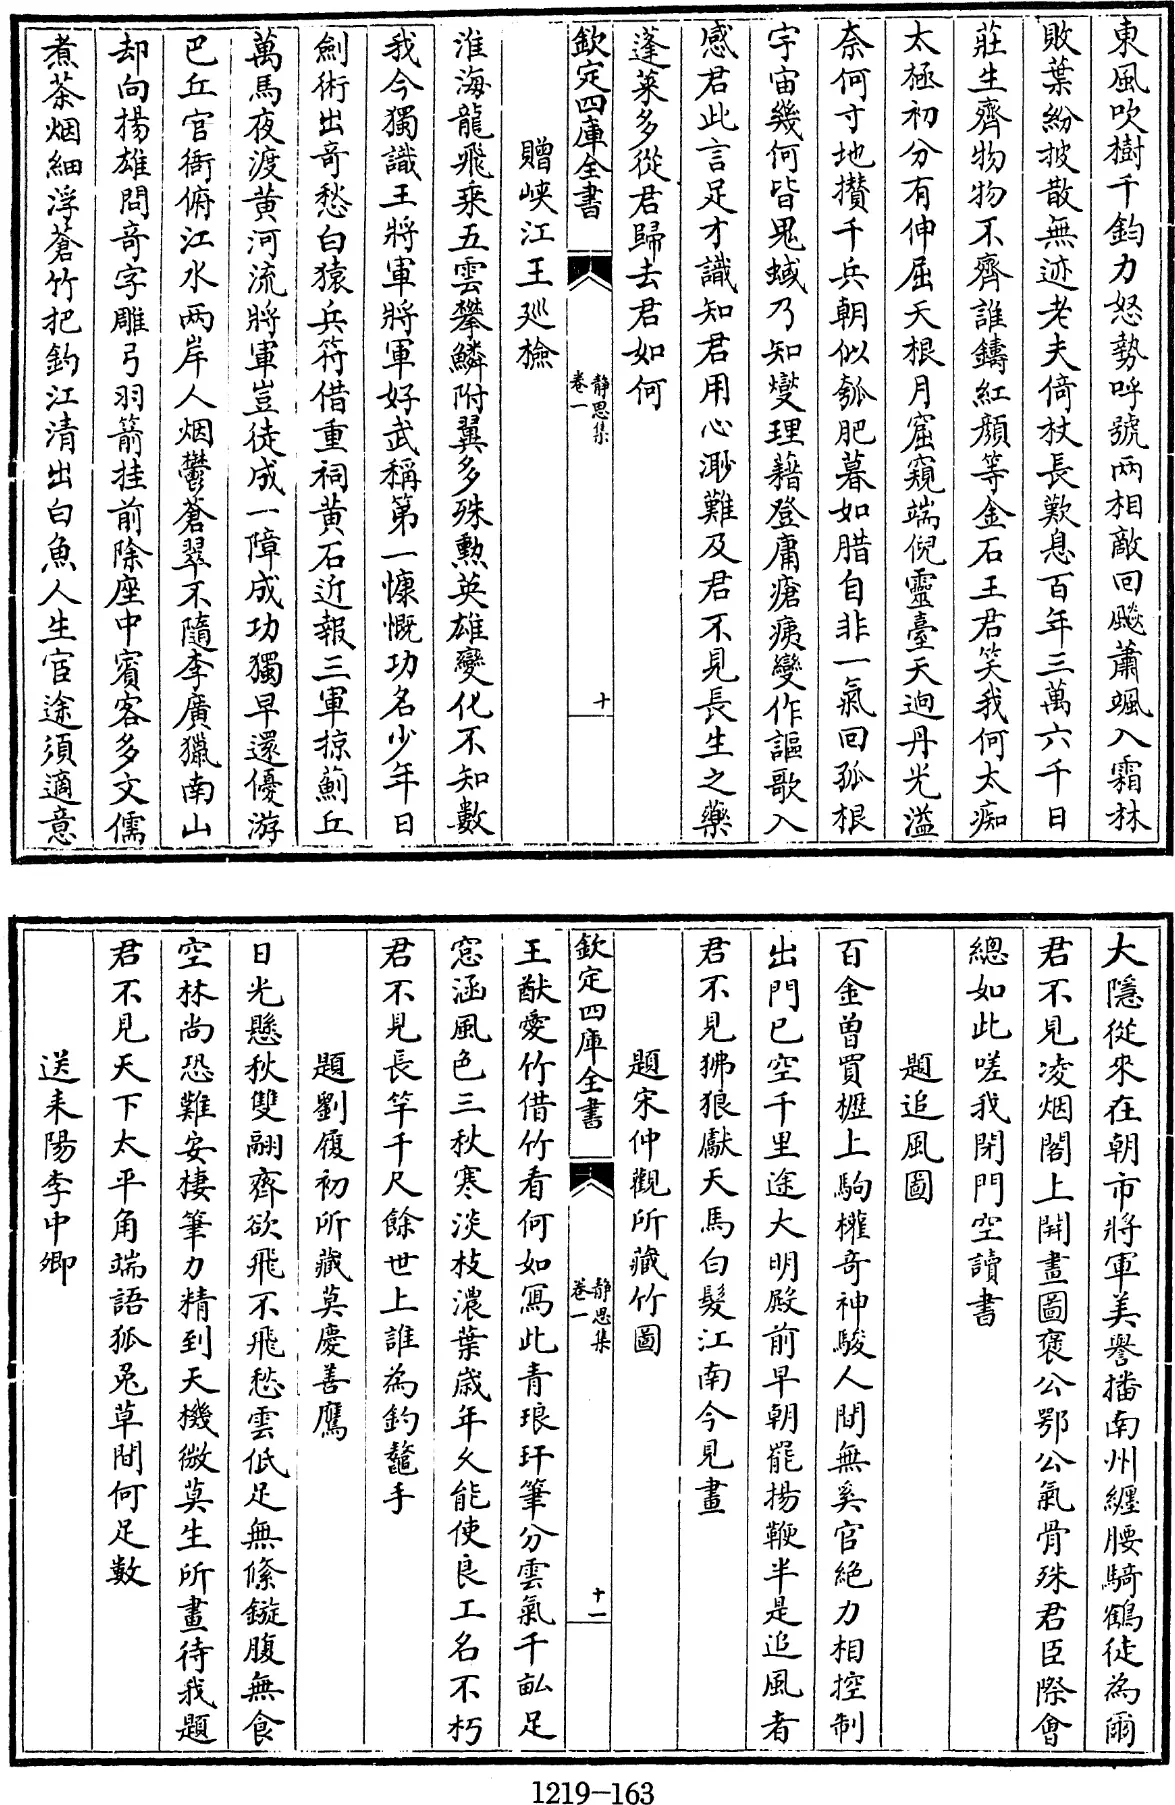 東風吹樹千鈞力怒勢呼號兩相敵回飈蕭颯入霜林
敗葉紛披散無迹老夫倚杖長歎息百年三萬六千日
莊生齊物物不齊誰鑄紅顏等金石王君笑我何太痴
太極初分有伸屈天根月窟窺端倪靈臺天逈丹光溢
奈何寸地攅千兵朝似瓠肥暮如腊自非一氣回孤根
宇宙幾何皆鬼蜮乃知燮理藉登庸瘡痍變作謳歌入
感君此言足才識知君用心渺難及君不見長生之藥
蓬萊多從君歸去君如何
欽定四庫全書
靜思集
卷一
十
贈峽江王廵檢
淮海龍飛乘五雲攀鱗附翼多殊勲英雄變化不知數
我今獨識王將軍將軍好武稱第一慷慨功名少年日
劍術出奇愁白猿兵符借重祠黄石近報三軍掠薊丘
萬馬夜渡黄河流將軍豈徒成一障成功獨早還優游
巴丘官衙俯江水两岸人烟鬱蒼翠不隨李廣獵南山
却向揚雄問竒字雕弓羽箭挂前除座中賓客多文儒
煮茶烟細浮蒼竹把釣江清出白魚人生宦途須適意
大隱從來在朝市將軍美譽播南州纏腰騎鶴徒為爾
君不見凌烟閣上開畫圖褒公鄂公氣骨殊君臣際會
總如此嗟我閉門空讀書
題追風圖
百金曾買櫪上駒權奇神駿人間無奚官絶力相控制
出門已空千里途大明殿前早朝罷揚鞭半是追風者
君不見狒狼獻天馬白髮江南今見畫
題宋仲觀所藏竹圖
欽定四庫全書
靜思集
卷一
十一
王猷愛竹借竹看何如寫此青琅玕筆分雲氣千畝足
窓涵風色三秋寒淡枝濃葉歲年久能使良工名不朽
君不見長竿千尺餘世上誰為釣鼇手
題劉履初所藏莫慶善鷹
日光懸秋雙翮齊欲飛不飛愁雲低足無絛鏇腹無食
空林尚恐難安棲筆力精到天機微莫生所畫待我題
君不見天下太平角端語狐兎草間何足數
送耒陽李中卿
1219-163